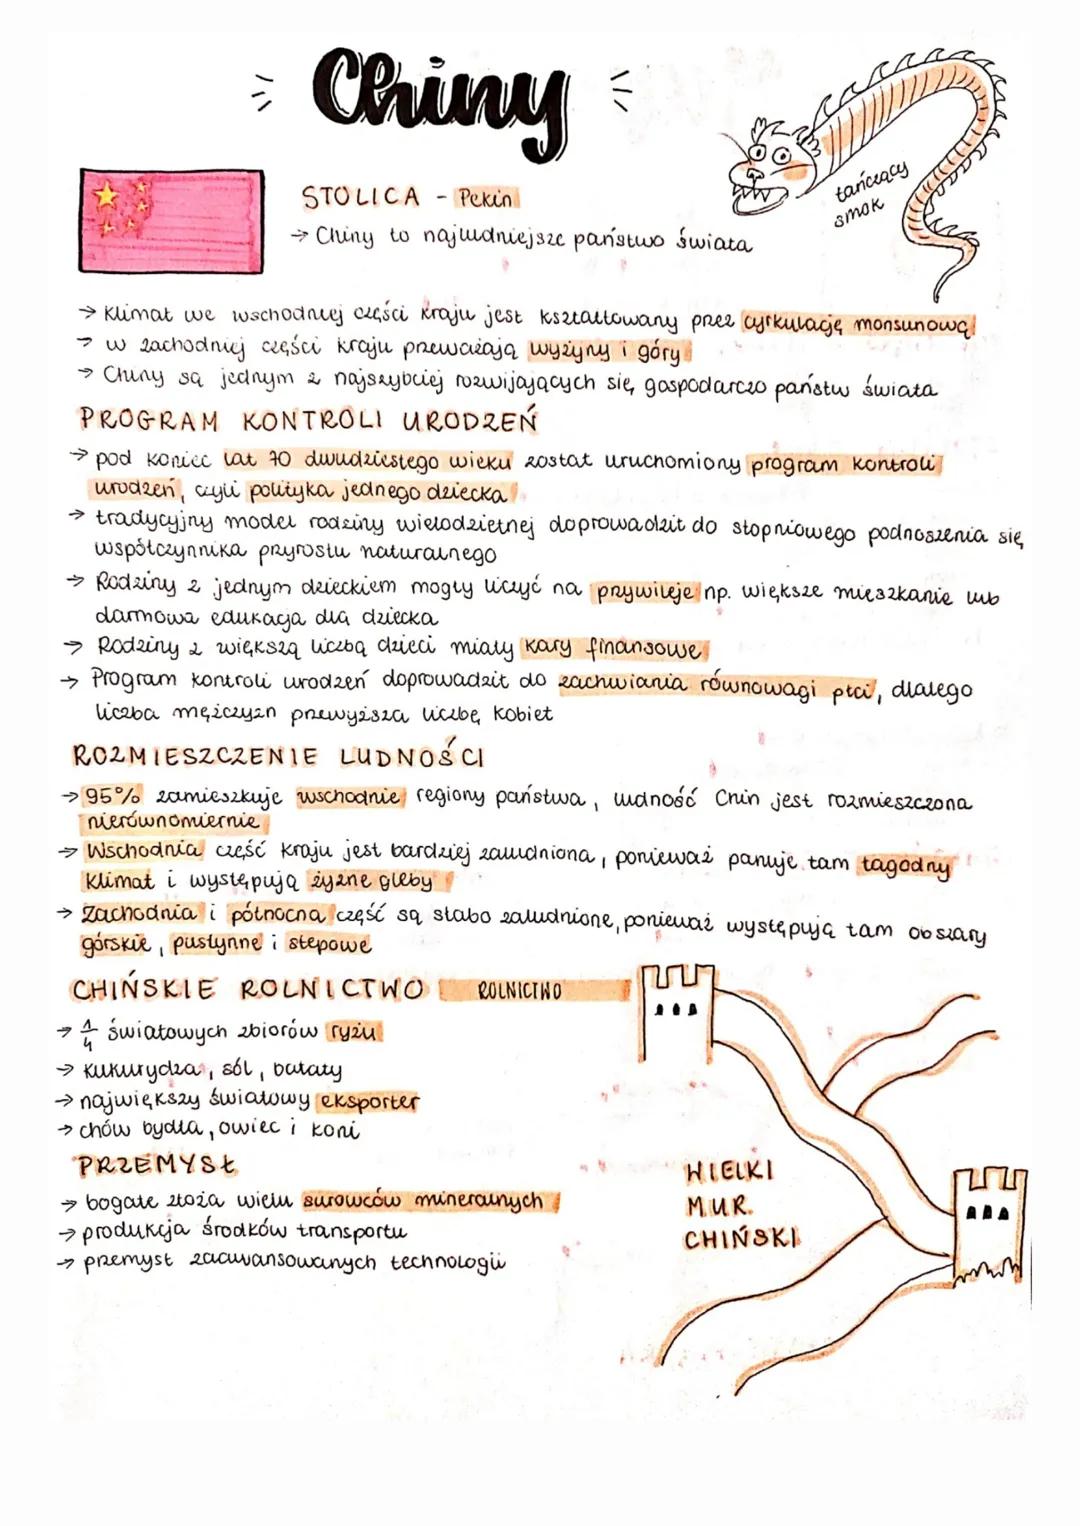 Chiny
STOLICA - Pekin
tańczący
smok
→ Chiny to najludniejsze państwo świata
→ Klimat we wschodniej części kraju jest kształtowany przez cyrkulację monsunową
→ w zachodniej części kraju przeważają wyżyny i góry
→ Chiny są jednym z najszybciej rozwijających się gospodarczo państw świata
PROGRAM KONTROLI URODZEŃ
→ pod koniec lat 70 dwudziestego wieku został uruchomiony program kontroli
urodzeń, czyli polityka jednego dziecka
→ tradycyjny model rodziny wielodzietnej doprowadził do stopniowego podnoszenia się
współczynnika przyrostu naturalnego
→ Rodziny z jednym dzieckiem mogły liczyć na przywileje np. większe mieszkanie lub
darmowa edukacja dla dziecka
→ Rodziny z większą liczbą dzieci miały kary finansowe
→ Program kontroli urodzeń doprowadził do zachwiania równowagi płci, dlatego
liczba mężczyzn przewyższa liczbę kobiet
ROZMIESZCZENIE LUDNOŚCI
→ 95% zamieszkuje wschodnie regiony państwa, ludność Chin jest rozmieszczona
nierównomiernie
→ Wschodnia część kraju jest bardziej zaludniona, ponieważ panuje tam łagodny
klimat i występują żyzne gleby
→ Zachodnia i północna część są słabo zaludnione, ponieważ występują tam obszary
górskie, pustynne i stepowe
CHIŃSKIE ROLNICTWO ROLNICTWO
→ 1/4 światowych zbiorów ryżu
→ kukurydza, sól, bataty
→ największy światowy eksporter
→ chów bydła, owiec i koni
PRZEMYSŁ
→ bogate złoża wielu surowców mineralnych
→ produkcja środków transportu
→ przemysł zaawansowanych technologii
WIELKI
MUR
CHIŃSKI